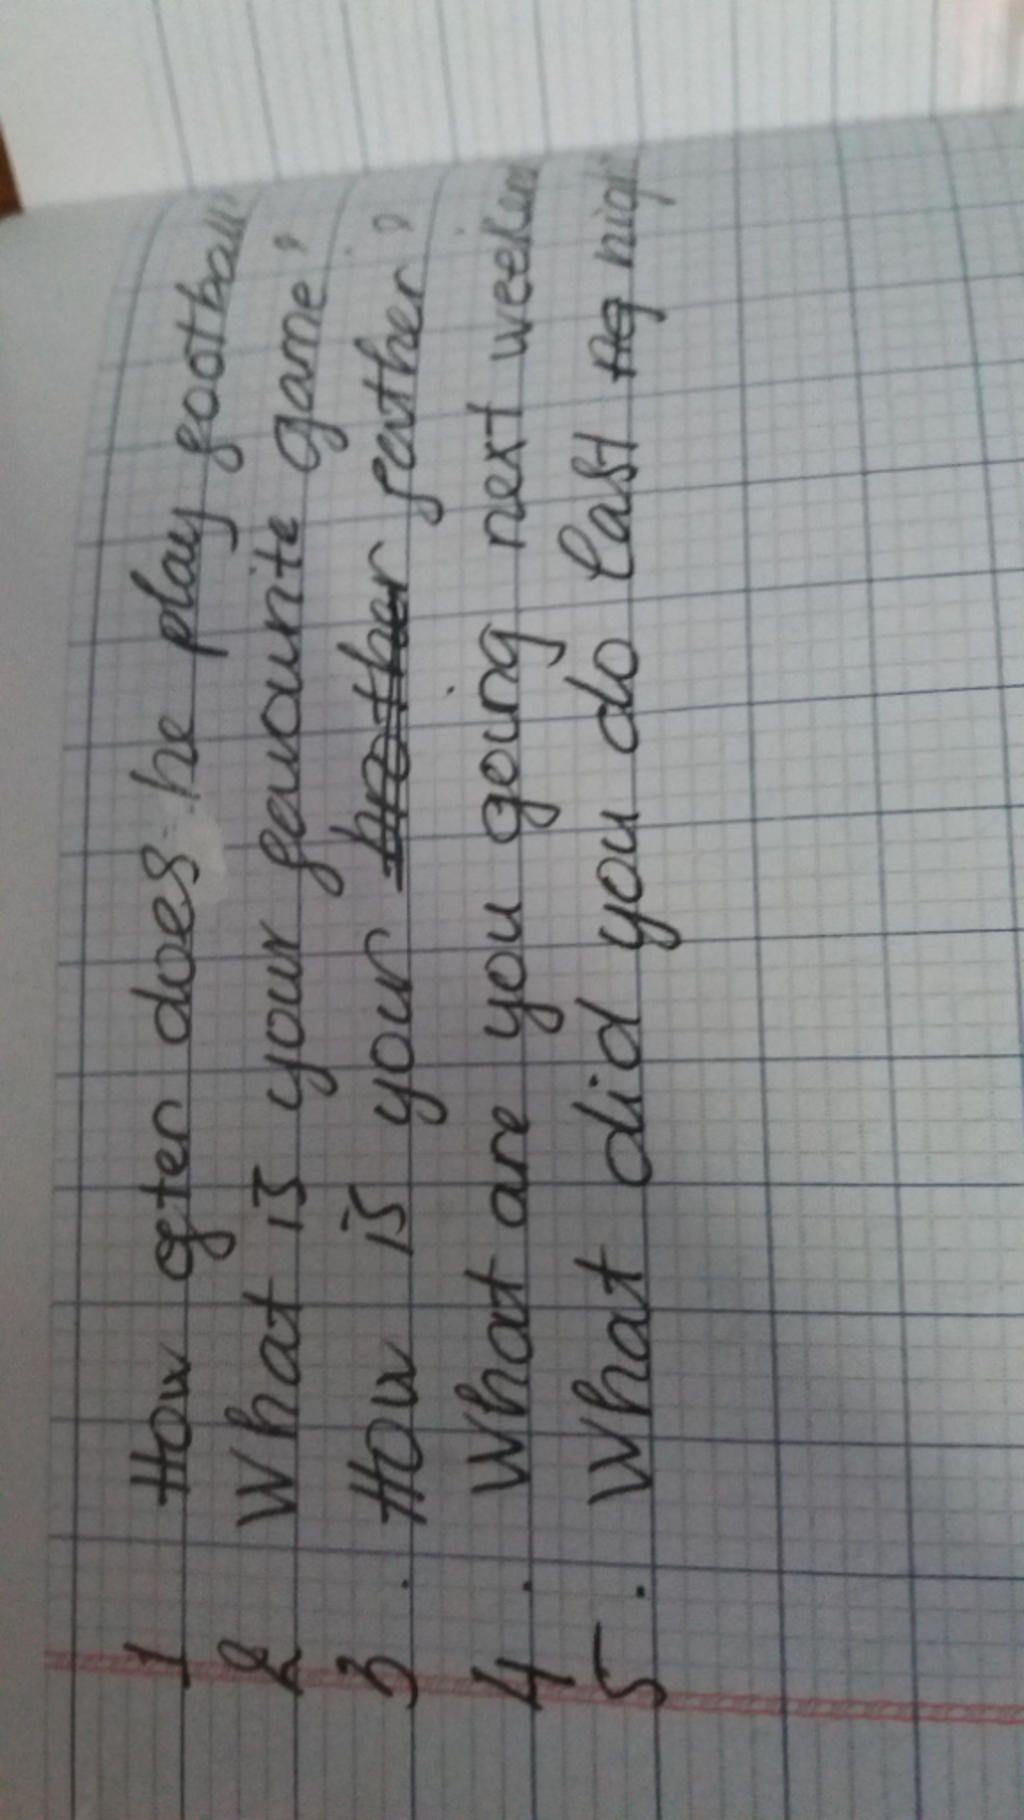 1 How often does he play football
2 What is your favourite game?
3. How is your brother father?
4. What are you going next weeken
5. What did you do last nig